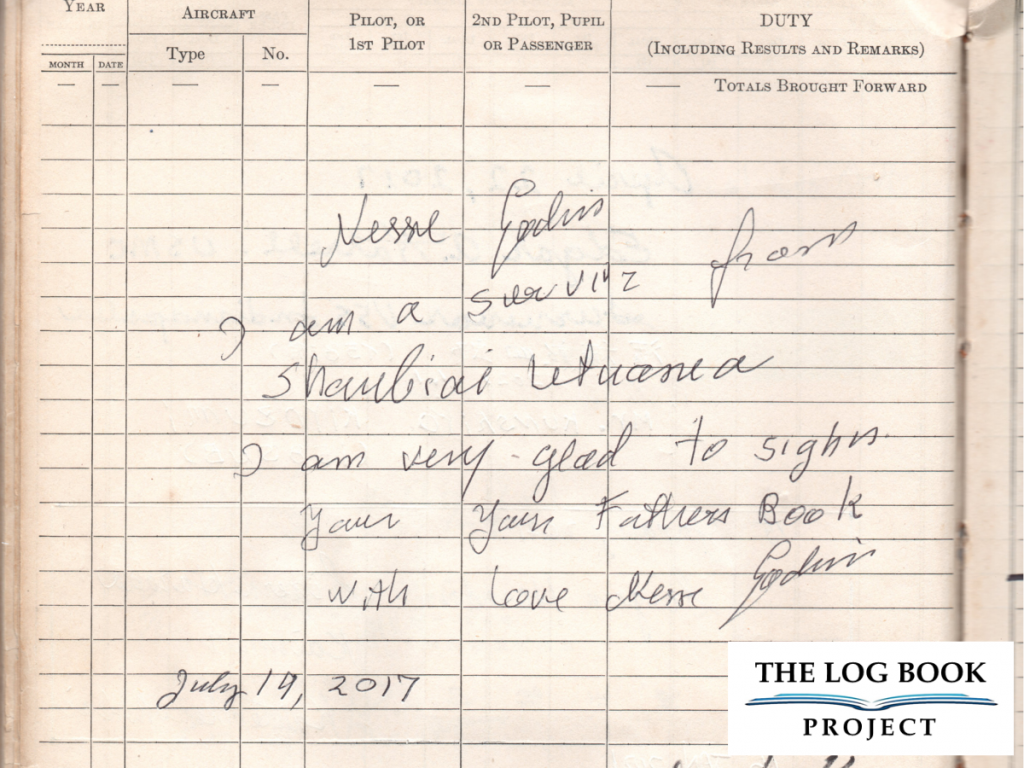 YEAR
AIRCRAFT
PILOT, OR
1ST PILOT
2ND PILOT, PUPIL
OR PASSENGER
DUTY
(INCLUDING RESULTS AND REMARKS)
MONTH DATE Type No.
— — — — — — —— TOTALS BROUGHT FORWARD
Nesse Godin
I am a survivz from
Shauliai Lituania
I am very glad to sighn
Your Your Fathers Book
with Love Nesse Godin
July 19, 2017
THE LOG BOOK
PROJECT